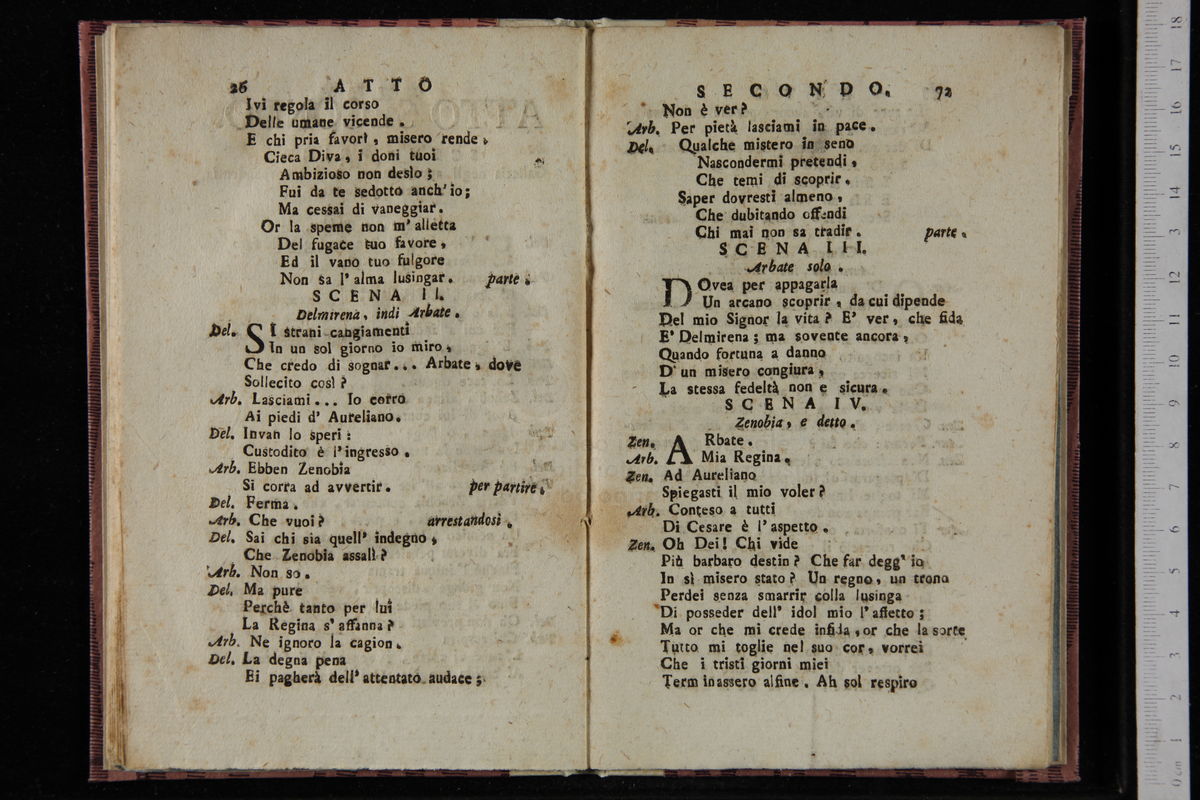 26 ATTO
Ivi regola il corso
Delle umane vicende.
E chi pria favorì, misero rende.
Cieca Diva, i doni tuoi
Ambizioso non desìo;
Fui da te sedotto anch' io;
Ma cessai di vaneggiar.
Or la speme non m' alletta
Del fugace tuo favore,
Ed il vano tuo fulgore
Non sa l' alma lusingar. parte.
SCENA II.
Delmirena, indi Arbate.
Del. SI strani cangiamenti
In un sol giorno io miro,
Che credo di sognar... Arbate, dove
Sollecito così?
Arb. Lasciami... Io corro
Ai piedi d' Aureliano.
Del. Invan lo speri:
Custodito è l' ingresso.
Arb. Ebben Zenobia
Si corra ad avvertir. per partire.
Del. Ferma.
Arb. Che vuoi? arrestandosi.
Del. Sai chi sia quell' indegno,
Che Zenobia assalì?
Arb. Non so.
Del. Ma pure
Perchè tanto per lui
La Regina s' affanna?
Arb. Ne ignoro la cagion.
Del. La degna pena
Ei pagherà dell' attentato audace;
SECONDO. 72
Non è ver?
Arb. Per pietà lasciami in pace.
Del. Qualche mistero in seno
Nascondermi pretendi,
Che temi di scoprir.
Saper dovresti almeno,
Che dubitando offendi
Chi mai non sa tradir. parte.
SCENA III.
Arbate solo.
DOvea per appagarla
Un arcano scoprir, da cui dipende
Del mio Signor la vita? E' ver, che fida
E' Delmirena; ma sovente ancora,
Quando fortuna a danno
D' un misero congiura,
La stessa fedeltà non e sicura.
SCENA IV.
Zenobia, e detto.
Zen. ARbate.
Arb. Mia Regina.
Zen. Ad Aureliano
Spiegasti il mio voler?
Arb. Conteso a tutti
Di Cesare è l' aspetto.
Zen. Oh Dei! Chi vide
Più barbaro destin? Che far degg' io
In sì misero stato? Un regno, un trono
Perdei senza smarrir colla lusinga
Di posseder dell' idol mio l' affetto;
Ma or che mi crede infida, or che la sorte
Tutto mi toglie nel suo cor, vorrei
Che i tristi giorni miei
Terminassero alfine. Ah sol respiro